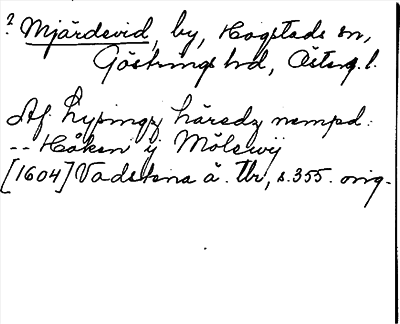 ? Mjärdevid, by, Hogstads sn,
Göstrings hd, Österg. l.
Af Lysingz häredz nempd:
-- Håken ij Mölewij
[1604] Vadstena ä. Tbr, s. 355. orig.